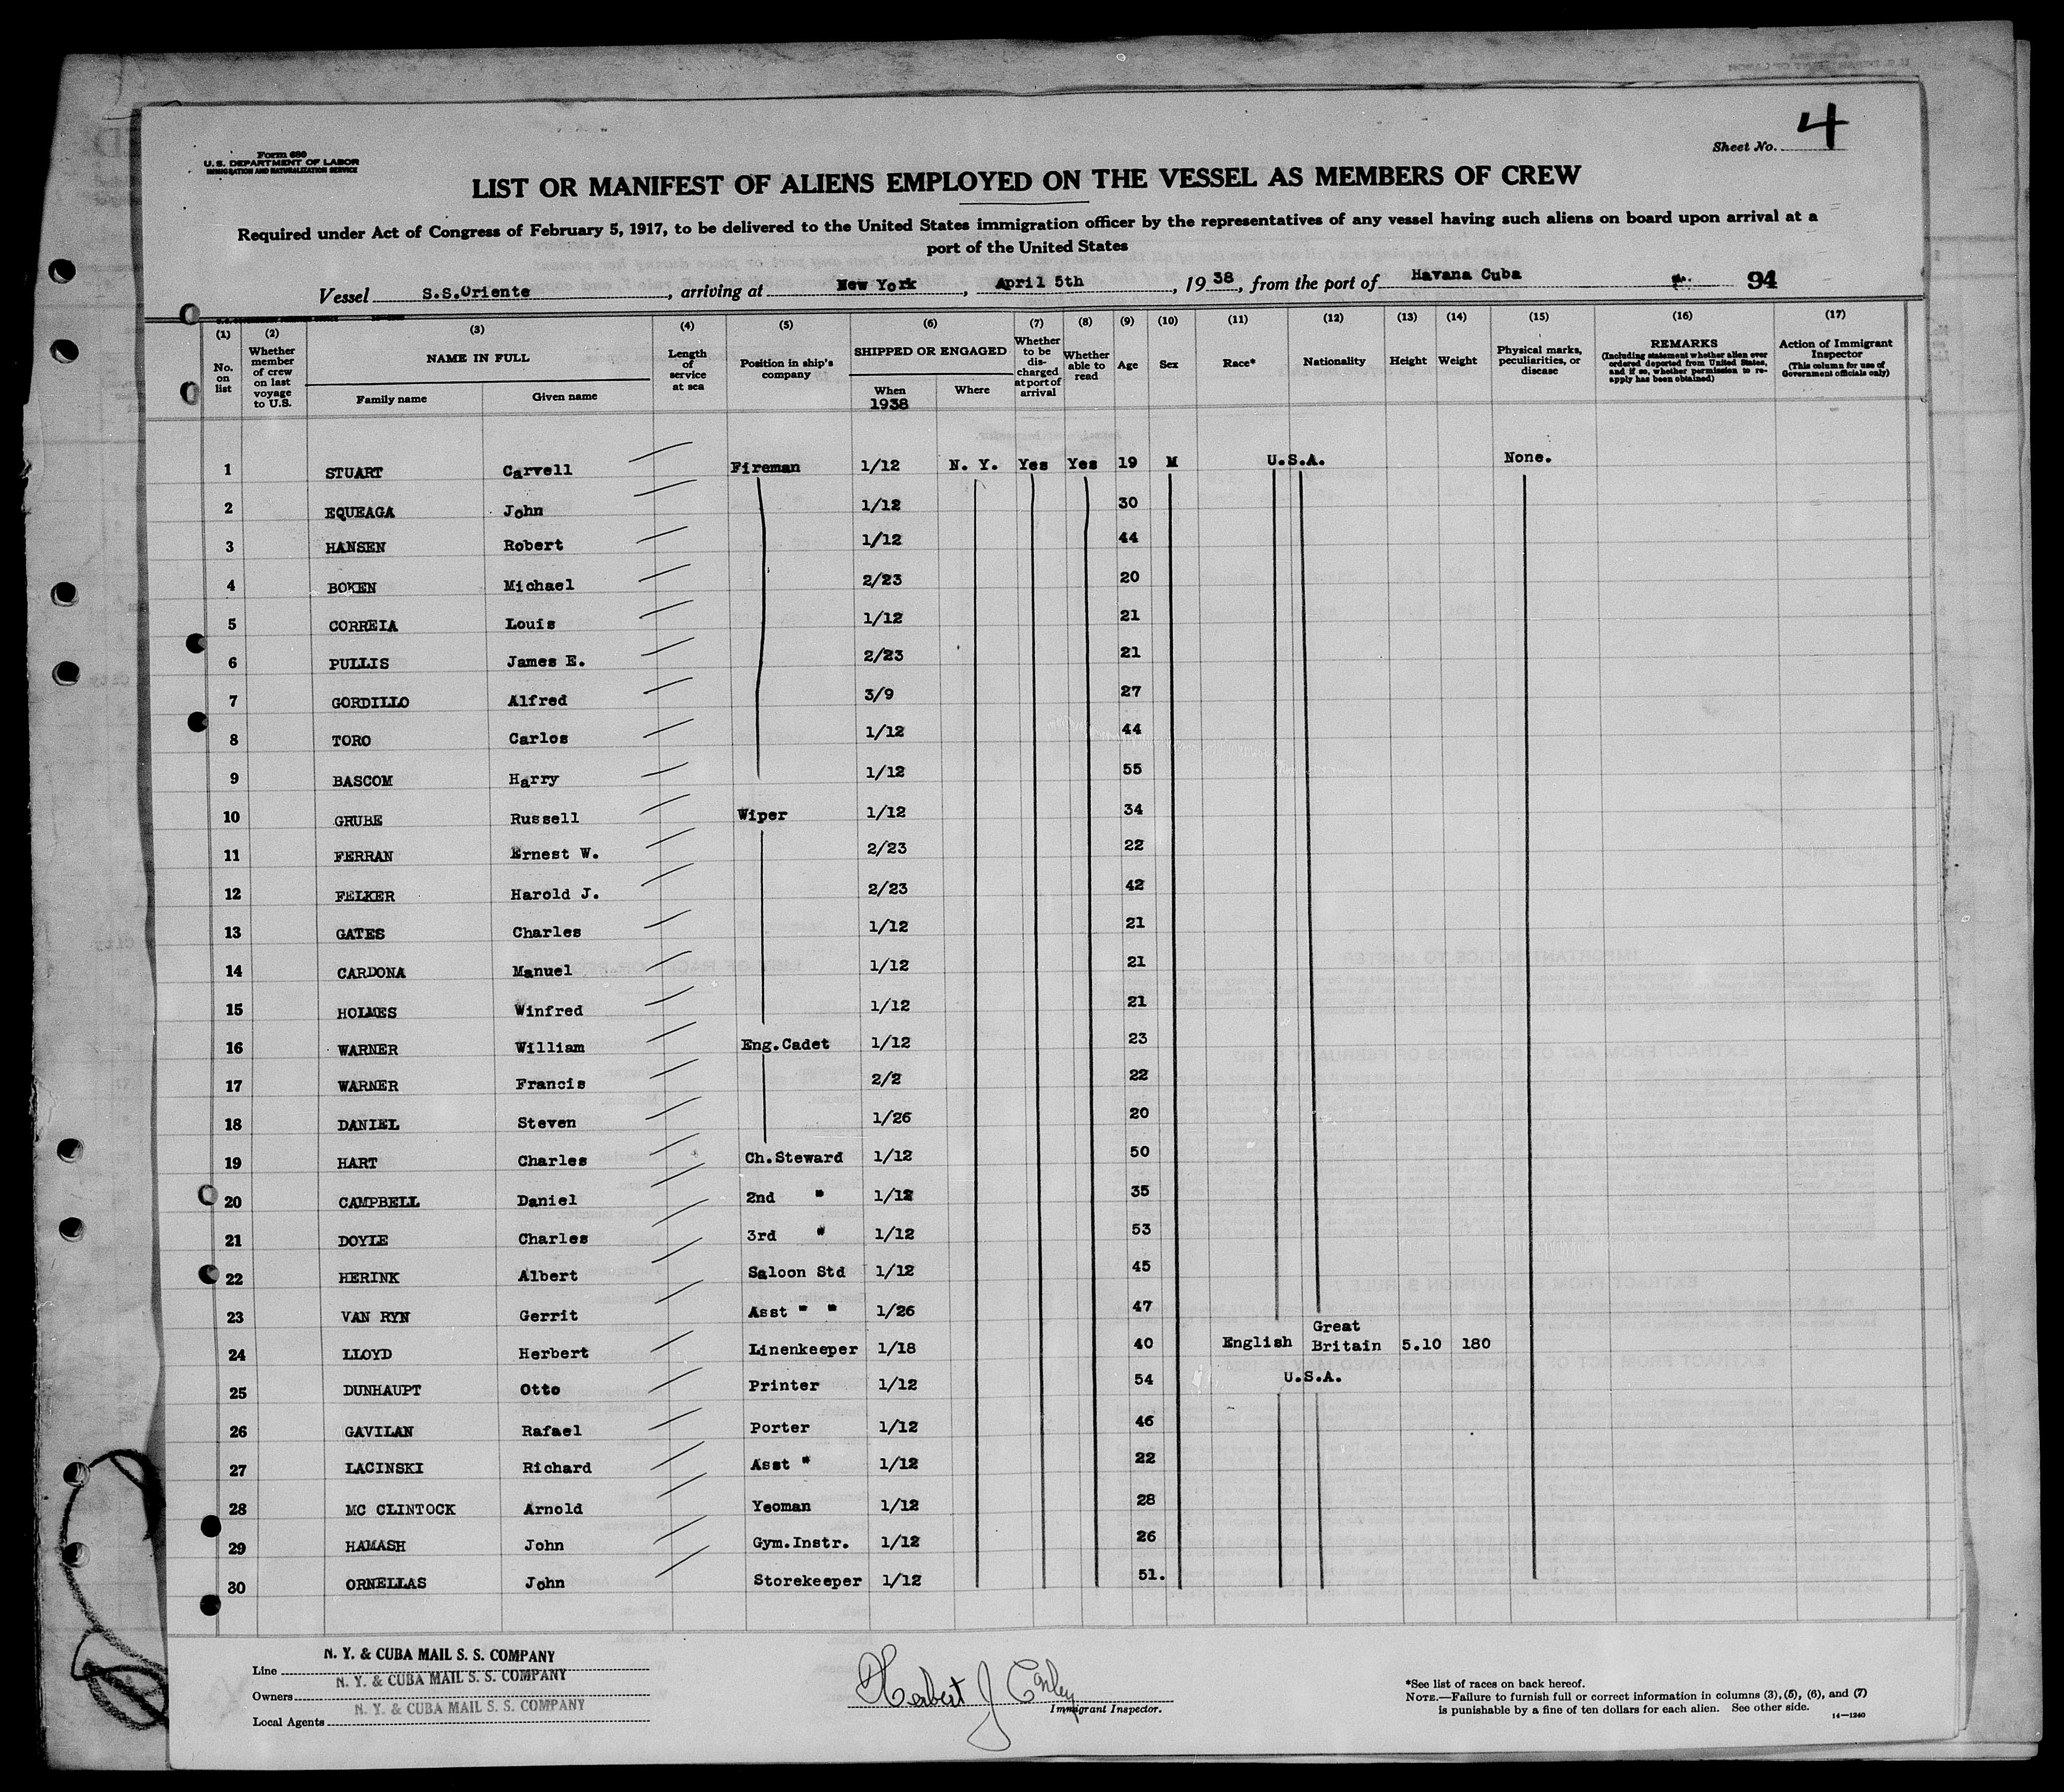 Form 680
U. S. DEPARTMENT OF LABOR
IMMIGRATION AND NATURALIZATION SERVICE
Sheet No. 4
LIST OR MANIFEST OF ALIENS EMPLOYED ON THE VESSEL AS MEMBERS OF CREW
Required under Act of Congress of February 5, 1917, to be delivered to the United States immigration officer by the representatives of any vessel having such aliens on board upon arrival at a
port of the United States
Vessel S.S.Oriente, arriving at New York, April 5th, 1938, from the port of Havana Cuba 94
(1) (2) (3) (4) (5) (6) (7) (8) (9) (10) (11) (12) (13) (14) (15) (16) (17)
No. on list
Whether member of crew on last voyage to U.S.
NAME IN FULL
Family name
Given name
Length of service at sea
Position in ship's company
SHIPPED OR ENGAGED
When 1938
Where
Whether to be discharged at port of arrival
Whether able to read
Age
Sex
Race*
Nationality
Height
Weight
Physical marks, peculiarities, or disease
REMARKS
(Including statement whether alien ever ordered deported from United States, and if so, whether permission to re-apply has been obtained)
Action of Immigrant Inspector
(This column for use of Government officials only)
1 STUART Carvell Fireman 1/12 N. Y. Yes Yes 19 M U.S.A. None.
2 EQUEAGA John 1/12 30
3 HANSEN Robert 1/12 44
4 BOKEN Michael 2/23 20
5 CORREIA Louis 1/12 21
6 PULLIS James E. 2/23 21
7 GORDILLO Alfred 3/9 27
8 TORO Carlos 1/12 44
9 BASCOM Harry 1/12 55
10 GRUBE Russell Wiper 1/12 34
11 FERRAN Ernest W. 2/23 22
12 FELKER Harold J. 2/23 42
13 GATES Charles 1/12 21
14 CARDONA Manuel 1/12 21
15 HOLMES Winfred 1/12 21
16 WARNER William Eng.Cadet 1/12 23
17 WARNER Francis 2/2 22
18 DANIEL Steven 1/26 20
19 HART Charles Ch.Steward 1/12 50
20 CAMPBELL Daniel 2nd " 1/12 35
21 DOYLE Charles 3rd " 1/12 53
22 HERINK Albert Saloon Std 1/12 45
23 VAN RYN Gerrit Asst " " 1/26 47
24 LLOYD Herbert Linenkeeper 1/18 40 English Great Britain 5.10 180
25 DUNHAUPT Otto Printer 1/12 54 U.S.A.
26 GAVILAN Rafael Porter 1/12 46
27 LACINSKI Richard Asst " 1/12 22
28 MC CLINTOCK Arnold Yeoman 1/12 28
29 HAMASH John Gym.Instr. 1/12 26
30 ORNELLAS John Storekeeper 1/12 51.
Line N. Y. & CUBA MAIL S. S. COMPANY
Owners N. Y. & CUBA MAIL S. S. COMPANY
Local Agents N. Y. & CUBA MAIL S. S. COMPANY
Herbert J Conley
Immigrant Inspector.
*See list of races on back hereof.
NOTE.—Failure to furnish full or correct information in columns (3), (5), (6), and (7)
is punishable by a fine of ten dollars for each alien. See other side.
14—1240